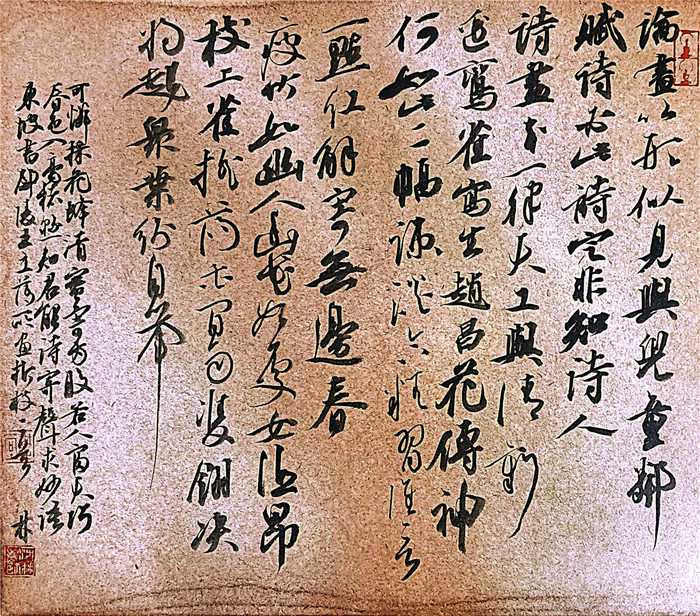 論畫以形似見與兒童鄰
賦詩必此詩定非知詩人
詩畫本一律天工與清新
邊鸞雀寫生趙昌花傳神
何如此二幅疎澹含精勻誰言
一點紅解寄無邊春
瘦竹如幽人幽花如處女低昂
枝上雀搖蕩花間雨雙翎決
將起眾葉紛自舉
可憐採花蜂清蜜寄兩股若人富天巧
春色入毫楮懸知君能詩寄聲求妙語
東坡書鄢陵王主簿所畫折枝二首 林